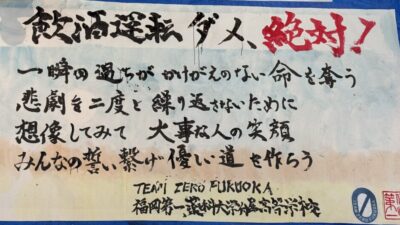 飲酒運転ダメ、絶対!
一瞬の過ちが かけがえのない 命を奪う
悲劇を二度と繰り返さないために
想像してみて 大事な人の笑顔
みんなの誓い繋げ 優しい道を作ろう
TEAM ZERO FUKUOKA
福岡第一薬科大学附属高等学校